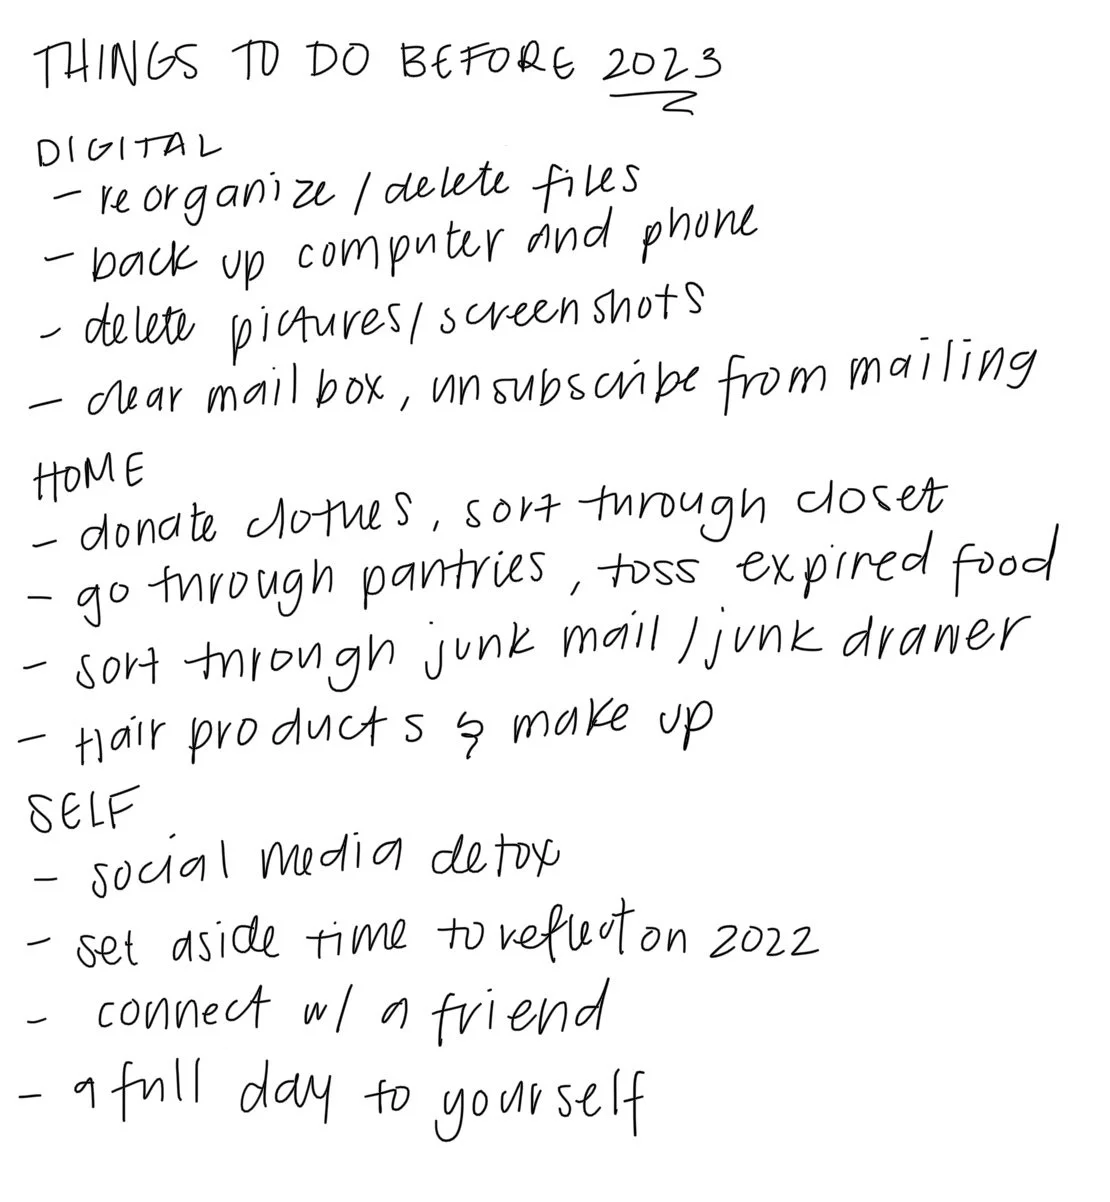 THINGS TO DO BEFORE 2023
DIGITAL
- reorganize / delete files
- back up computer and phone
- delete pictures / screenshots
- clear mail box, unsubscribe from mailing
HOME
- donate clothes, sort through closet
- go through pantries, toss expired food
- sort through junk mail / junk drawer
- Hair products & make up
SELF
- social media detox
- set aside time to reflect on 2022
- connect w/ a friend
- a full day to yourself